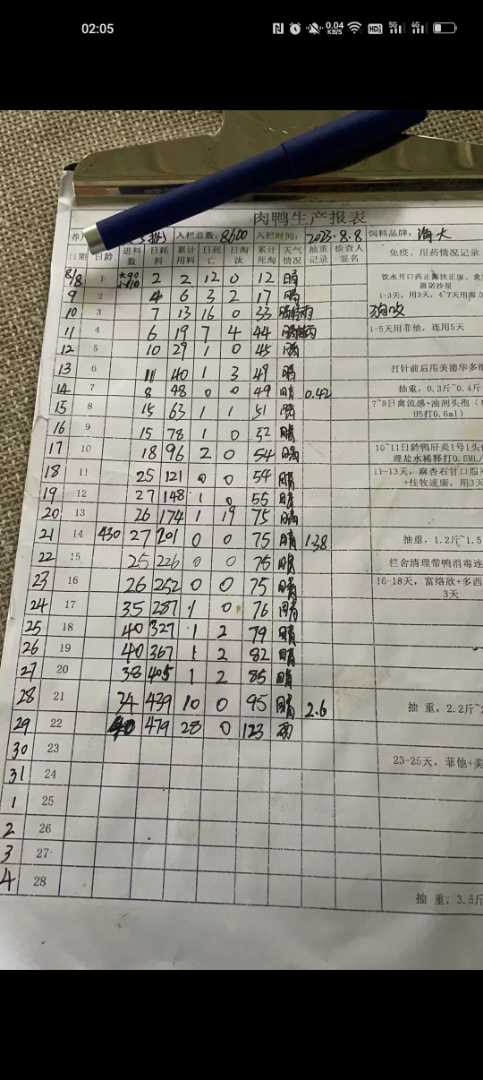 02:05 0.04 KB/S HD 5G 4G
肉鸭生产报表
养 入栏总数: 8600 入栏时间: 2023.8.8 饲料品牌: 海大
日期 日龄 进料数 日耗料 累计用料 日死亡 日淘汰 累计死淘 天气情况 抽重记录 检查人签名 免疫、用药情况记录
8/8 1 2 2 12 0 12 晴 饮水开口药
9 2 4 6 3 2 17 晴 1-3天,用3天,4
10 3 7 13 16 0 33
11 4 6 19 7 4 44 1-5天用菲他,连用5天
12 5 10 29 1 0 45 晴
13 6 11 40 1 3 49 晴 打针前后用美德华多维
14 7 8 48 0 0 49 晴 0.42 抽重,0.3斤~0.4斤
15 8 15 63 1 1 51 晴 7~8日禽流感+油剂头孢
H5打0.5ml)
16 9 15 78 1 0 52 晴
17 10 18 96 2 0 54 晴 10~11日龄鸭肝炎1号1头份
理盐水稀释打0.5ML/
18 11 25 121 0 0 54 晴 11-13天,麻杏石甘口服
19 12 27 148 1 0 55 晴 +佳牧速康,用3天
20 13 26 174 1 19 75 晴
21 14 430 27 201 0 0 75 晴 1.38 抽重,1.2斤~1.5
22 15 25 226 0 0 75 晴 栏舍清理带鸭消毒
23 16 26 252 0 0 75 晴 16-18天,富络欣+多西
3天
24 17 35 287 1 0 76 晴
25 18 40 327 1 2 79 晴
26 19 40 367 1 2 82 晴
27 20 38 405 1 2 85 晴
28 21 34 439 10 0 95 晴 2.6 抽重,2.2斤~
29 22 40 479 28 0 123 雨
30 23 23-25天,菲他+美
31 24
1 25
2 26
3 27
4 28 抽重:3.8斤